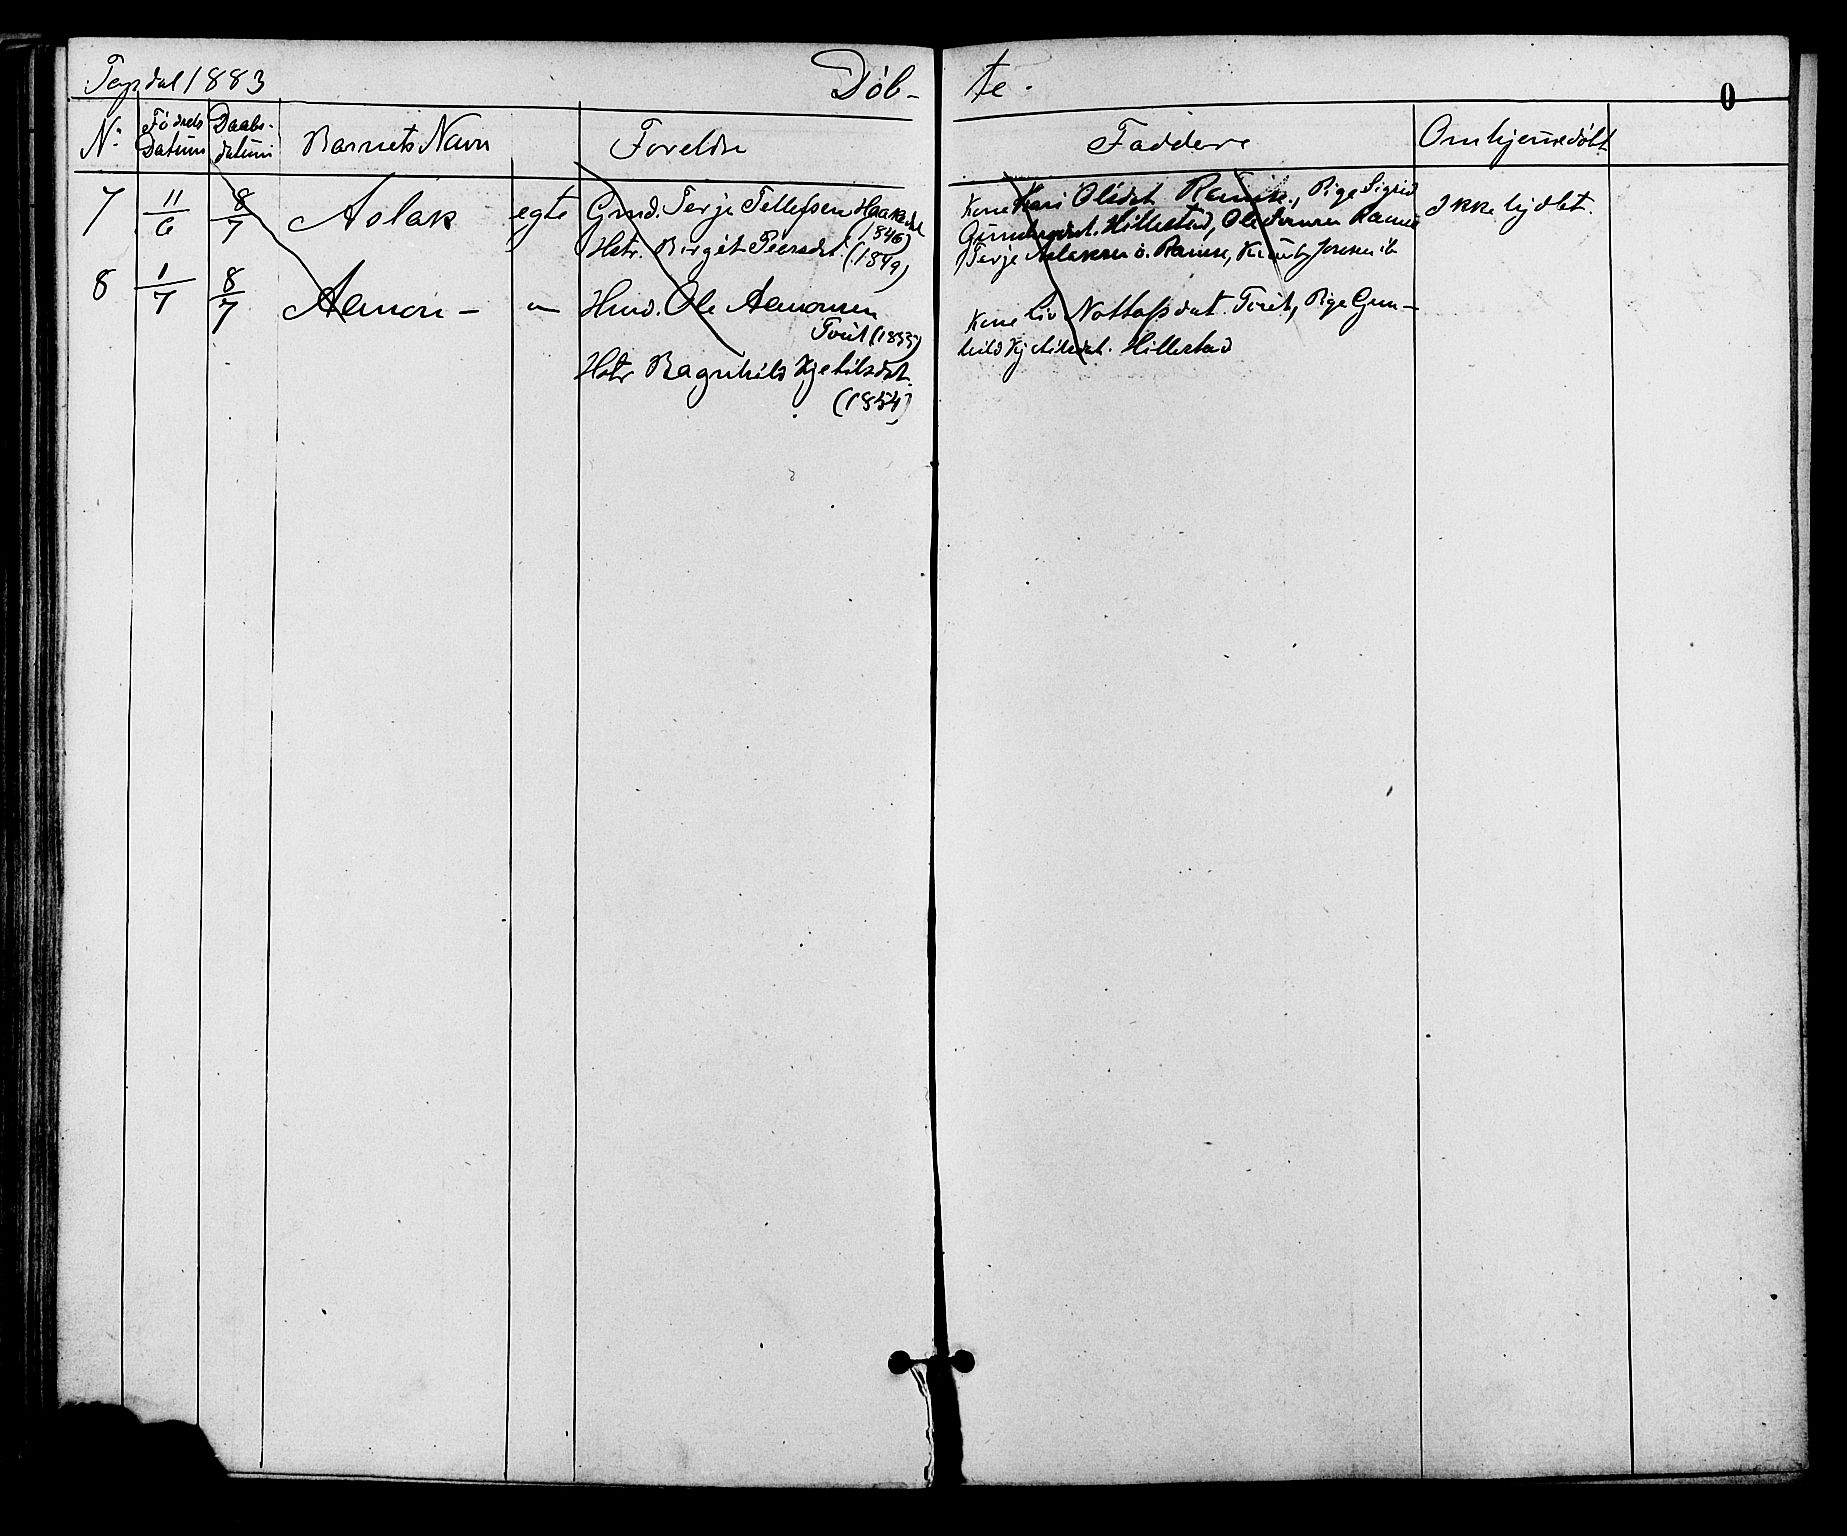 Topdal 1883 Døb- te. 0
No Fødsels Datum Daabs- datum Barnets Navn Foreldre Faddere Om hjemmedøbt
7 11/6 8/7 Aslak egte Gmd. Terje Tellefsen Haakedal (1846)
Hstr. Birgit Peersdat. (1849)
Kone Kari Olsdat. Ramse, Pige Sigrid
Gundersdat. Hillestad, Ole Ramse
Terje Aslaksen o. Ramse, Knut
Ikke hjdbt.
8 1/7 8/7 Aamon - " Hmd. Ole Aamonsen
Tveit (1853)
Hstr Ragnhild Kjetilsdat.
(1854)
Kone Liv Nottofsdat. Tveit, Pige Gun-
hild Kjetilsdat. Hillestad